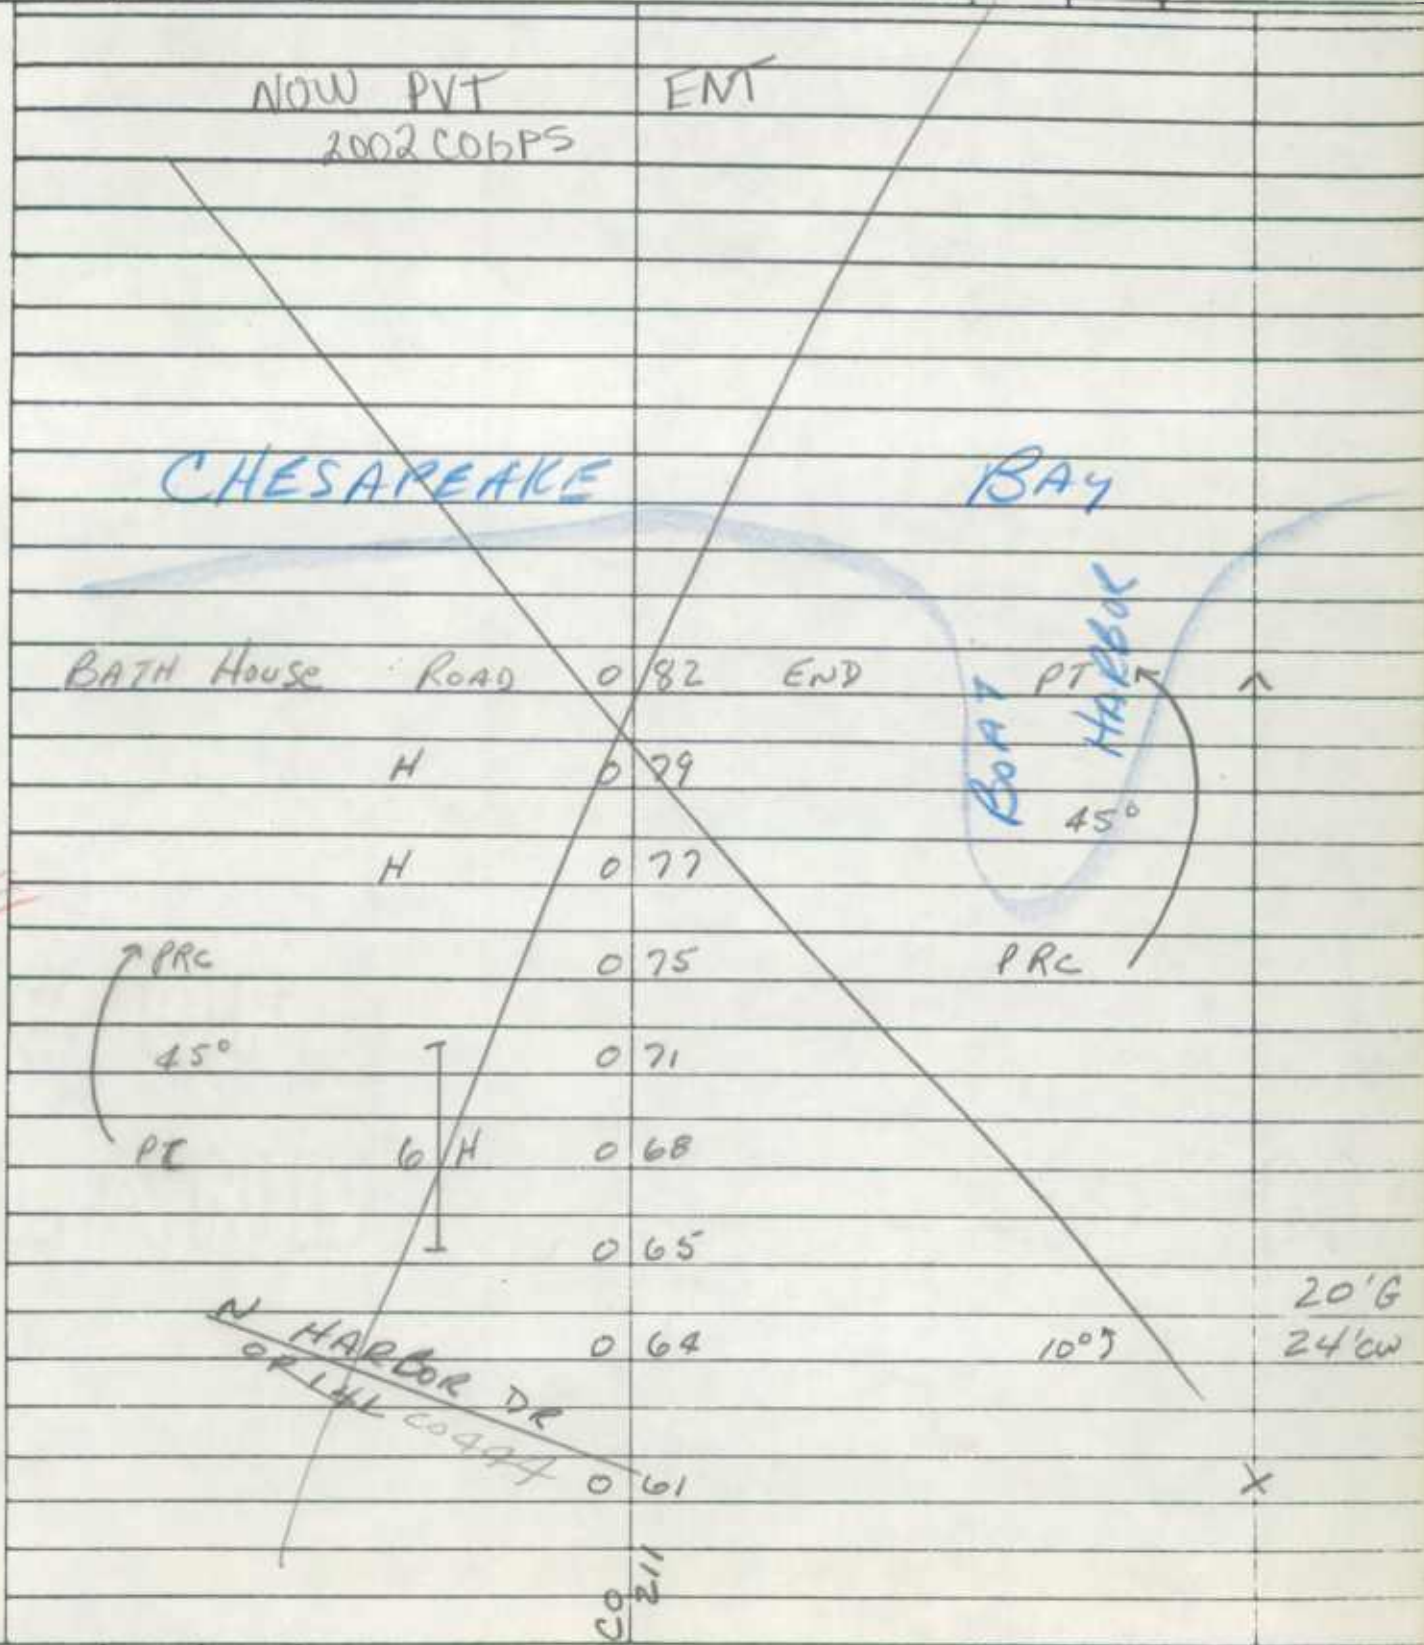 NOW PVT ENT
2002 COGPS
CHESAPEAKE BAY
BOAT HARBOR
BATH HOUSE ROAD 0 82 END PT ^
H 0 79
45°
H 0 77
PRC 0 75 PRC
45° 0 71
PT 6 H 0 68
0 65
20'G
N HARBOR DR 0 64 10° 24'CW
CO 494
0 61 X
CO 211